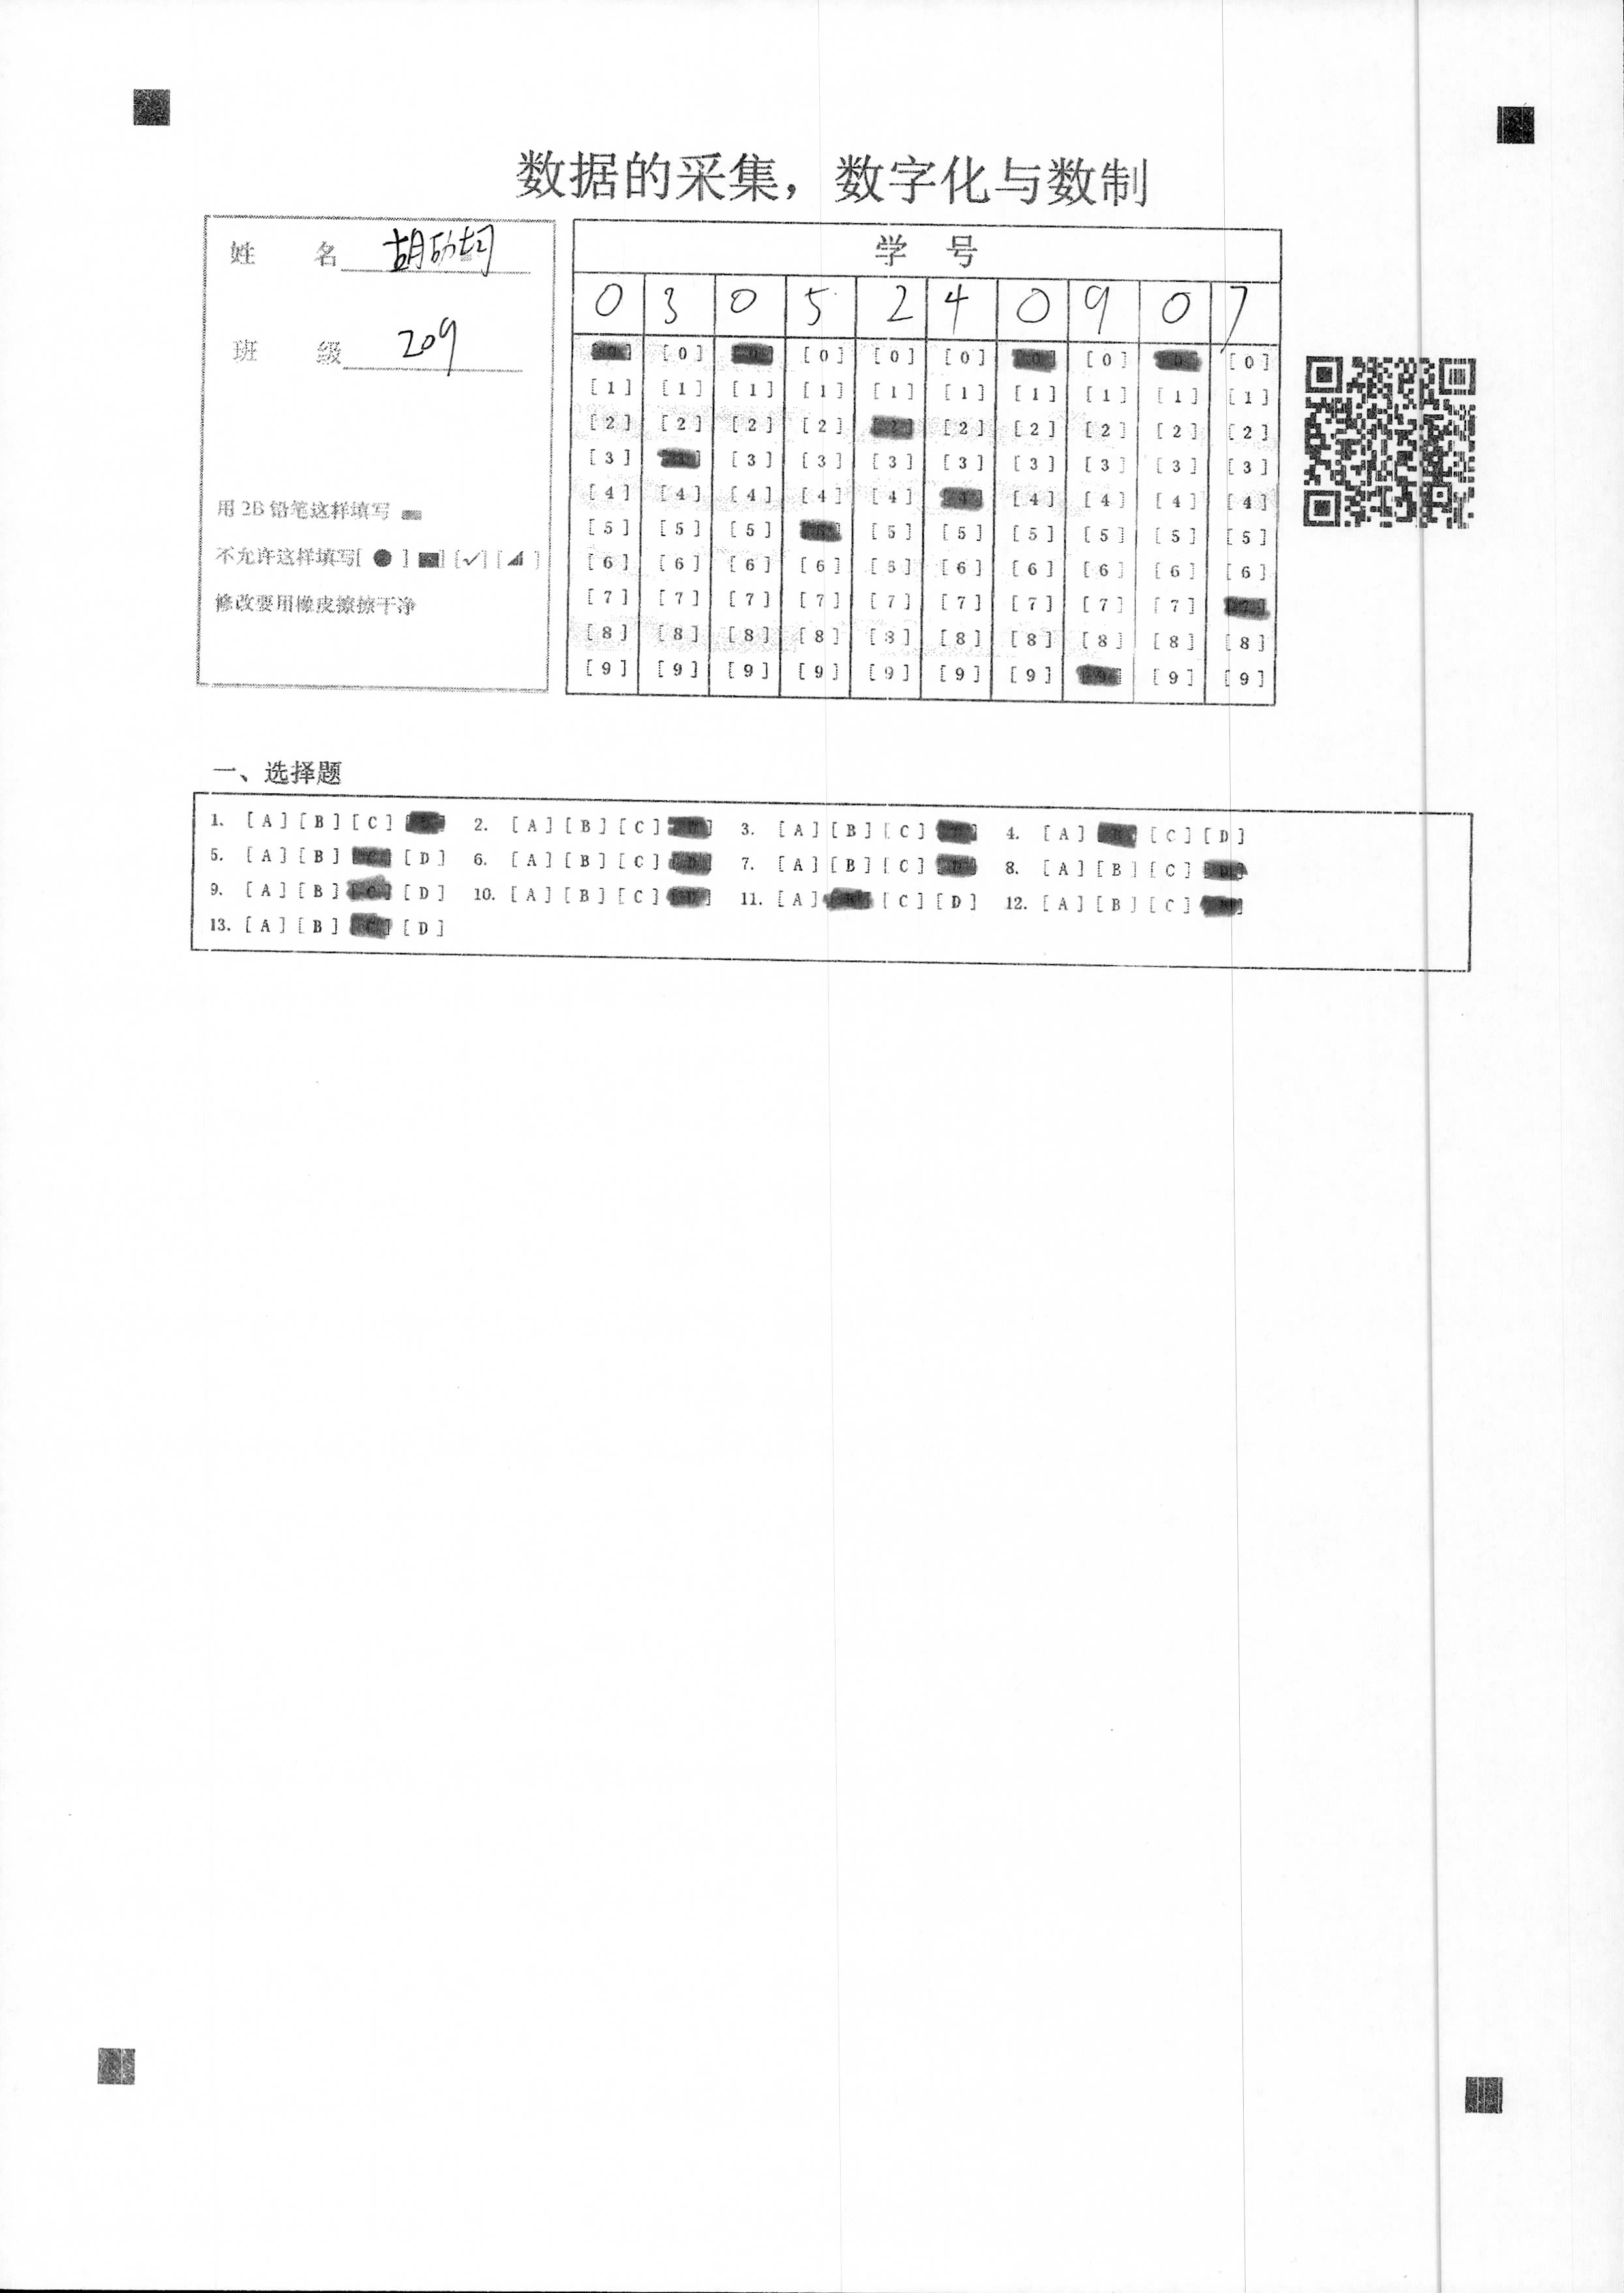 数据的采集，数字化与数制
姓 名 胡
班 级 209
用 2B 铅笔这样填写
不允许这样填写[ ● ] [✓] [ ]
修改要用橡皮擦擦干净
学 号
0 3 0 5 2 4 0 9 0 7
[0] [0] [0] [0] [0] [0]
[1] [1] [1] [1] [1] [1] [1] [1] [1] [1]
[2] [2] [2] [2] [2] [2] [2] [2] [2]
[3] [3] [3] [3] [3] [3] [3] [3] [3]
[4] [4] [4] [4] [4] [4] [4] [4] [4]
[5] [5] [5] [5] [5] [5] [5] [5] [5]
[6] [6] [6] [6] [6] [6] [6] [6] [6] [6]
[7] [7] [7] [7] [7] [7] [7] [7] [7]
[8] [8] [8] [8] [8] [8] [8] [8] [8] [8]
[9] [9] [9] [9] [9] [9] [9] [9] [9]
一、选择题
1. [A] [B] [C] 2. [A] [B] [C] 3. [A] [B] [C] 4. [A] [C] [D]
5. [A] [B] [D] 6. [A] [B] [C] 7. [A] [B] [C] 8. [A] [B] [C]
9. [A] [B] [D] 10. [A] [B] [C] 11. [A] [C] [D] 12. [A] [B] [C]
13. [A] [B] [D]